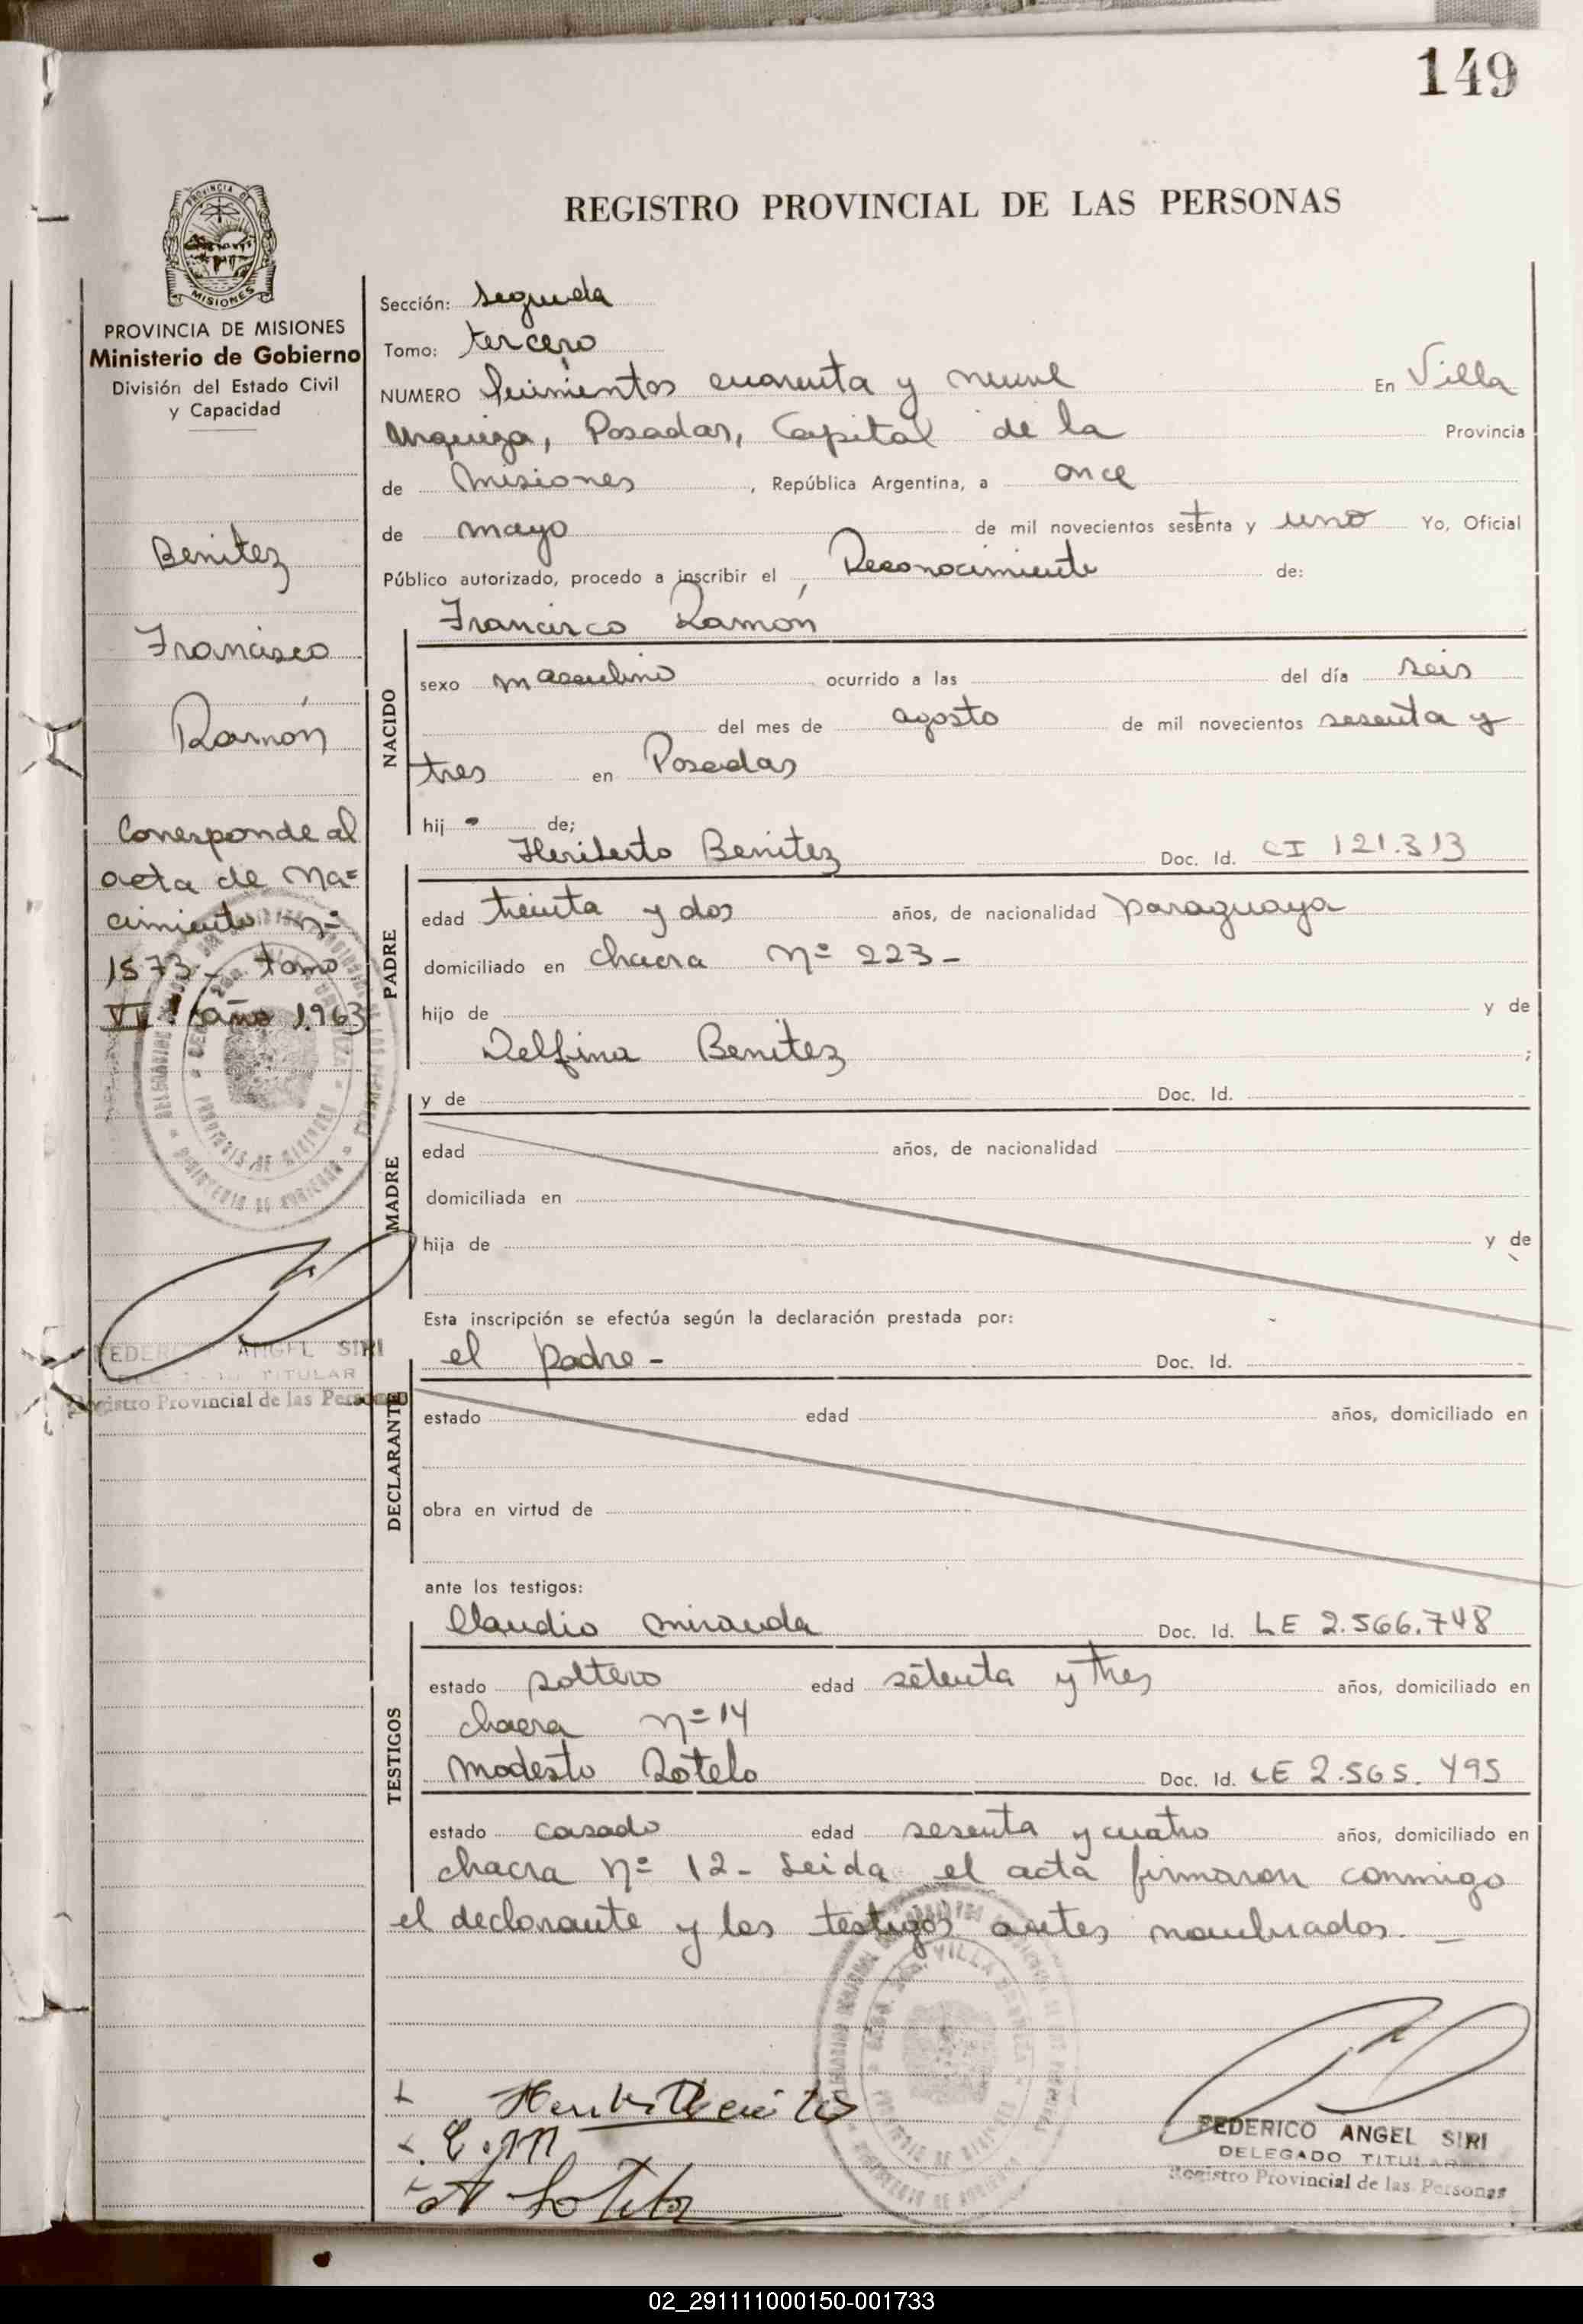 149
PROVINCIA DE MISIONES
REGISTRO PROVINCIAL DE LAS PERSONAS
PROVINCIA DE MISIONES
Ministerio de Gobierno
División del Estado Civil
y Capacidad
Benitez
Francisco
Ramón
Corresponde al
acta de Na=
cimiento nº
1573 - tomo
VI año 1963
FEDERICO ANGEL SIRI
TITULAR
Registro Provincial de las Personas
Sección: segunda
Tomo: tercero
NUMERO quinientos cuarenta y nueve En Villa
Urquiza, Posadas, Capital de la Provincia
de Misiones, República Argentina, a once
de mayo de mil novecientos setenta y uno Yo, Oficial
Público autorizado, procedo a inscribir el Reconocimiento de:
Francisco Ramón
NACIDO
sexo masculino ocurrido a las del día seis
del mes de agosto de mil novecientos sesenta y
tres en Posadas
hij de;
Heriberto Benitez Doc. Id. CI 121.313
PADRE
edad treinta y dos años, de nacionalidad paraguaya
domiciliado en chacra nº 223 -
hijo de y de
Delfina Benitez ;
MADRE
y de Doc. Id.
edad años, de nacionalidad
domiciliada en
hija de y de
Esta inscripción se efectúa según la declaración prestada por:
el padre - Doc. Id.
DECLARANTE
estado edad años, domiciliado en
obra en virtud de
ante los testigos:
Claudio Miranda Doc. Id. LE 2.566.748
TESTIGOS
estado soltero edad setenta y tres años, domiciliado en
chacra nº 14
Modesto Sotelo Doc. Id. LE 2.565.495
estado casado edad sesenta y cuatro años, domiciliado en
chacra nº 12 - Leida el acta firmaron conmigo
el declarante y los testigos antes nombrados. -
FEDERICO ANGEL SIRI
DELEGADO TITULAR
Registro Provincial de las Personas
02_291111000150-001733